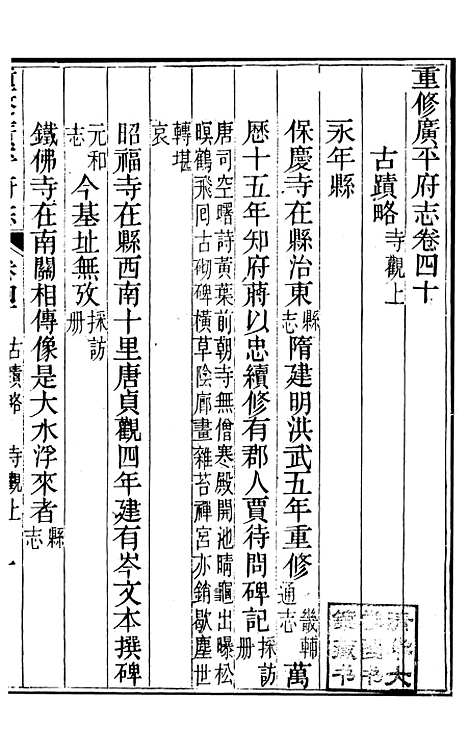 重修廣平府志卷四十
古蹟略寺觀上
永年縣
保慶寺在縣治東縣志隋建明洪武五年重修畿輔通志萬
歷十五年知府蔣以忠續修有郡人賈待問碑記採訪册
唐司空曙詩黃葉前朝寺無僧寒殿開池晴龜出曝松
暝鶴飛囘古砌碑橫草陰廊畫雜苔禪宮亦銷歇塵世
轉堪哀
昭福寺在縣西南十里唐貞觀四年建有岑文本撰碑
元和志今基址無攷採訪册
鐵佛寺在南關相傳像是大水浮來者縣志
古蹟略 寺觀上 一